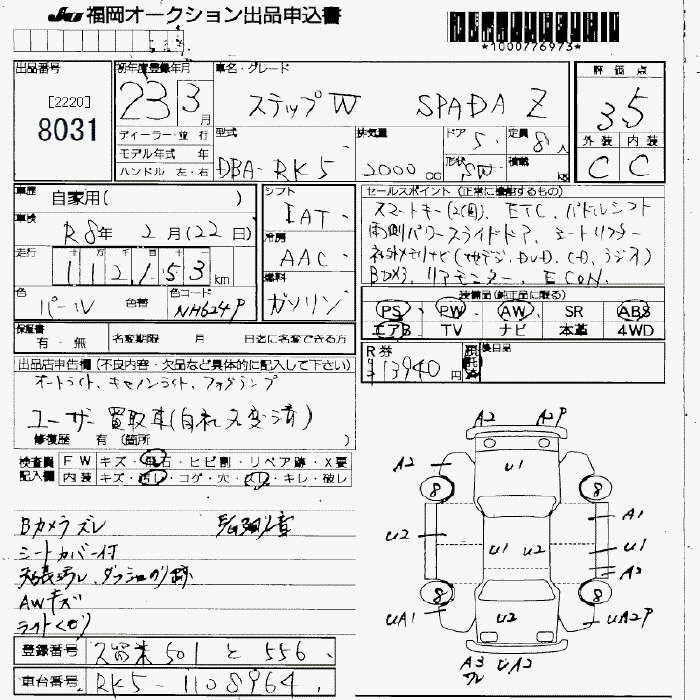 JU 福岡オークション出品申込書
*1000776973*
出品番号
[2220]
8031
初年度登録年月
23 3 月
車名・グレード
ステップW SPADA Z
評価点
3.5
外装 内装
C C
ディーラー・並行
モデル年式 年
ハンドル 左・右
型式
DBA-RK5
排気量
2000 cc
ドア
5
形状
SW
定員
8人
積載
kg
車歴
自家用( )
車検
R8年 2月(22日)
走行
112153 km
色
パール 色替
色コード
NH624P
シフト
IAT
冷房
AAC
燃料
ガソリン
セールスポイント(正常に機能するもの)
スマートキー(2個)、ETC、パドルシフト
両側パワースライドドア、シートリフター
社外メモリナビ(地デジ、DVD、CD、ラジオ)
Bカメラ、リアモニター、ECON、
装備品(純正品に限る)
PS PW AW SR ABS
エアB TV ナビ 本革 4WD
保証書
有・無
名変期限 月 日迄に名変できる方
R券
¥13940円
後日品
出品店申告欄(不良内容・欠品など具体的に記入して下さい)
オートライト、キセノンライト、フォグランプ
ユーザー買取車(自社名変済)
修復歴 有(箇所 )
検査員記入欄
FW キズ・飛石・ヒビ割・リペア跡・X要
内装 キズ・汚レ・コゲ・穴・スレ・キレ・破レ
Bカメラズレ
シートカバー付
天張汚レ、ダッシュのり跡
AWキズ
ライトくもり
登録番号
久留米 501 と 556
車台番号
RK5-1108964
A2 A2P
A2 U1
8 8
U2 U1 U2 A1
U1
A2
8 8
UA1 U2 UA2P
A3 UA2
ズレ